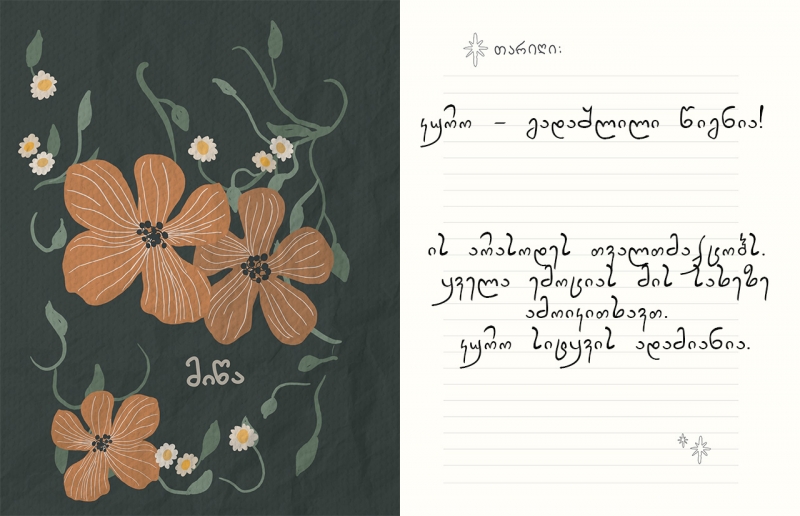 მიწა
თარიღი:
კურო – გადაშლილი წიგნია!
ის არასოდეს თვალთმაქცობს.
ყველა ემოციას მის სახეზე
ამოიკითხავთ.
კურო სიტყვის ადამიანია.